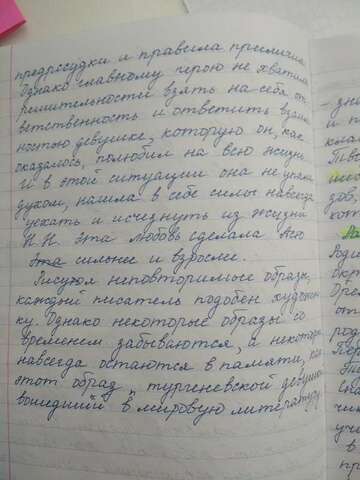 предрассудки и правила приличия.
Однако главному герою не хватило
решительности взять на себя от-
ветственность и ответить взаим-
ностью девушке, которую он, как
оказалось, полюбил на всю жизнь.
И в этой ситуации она не упала
духом, нашла в себе силы навсегда
уехать и исчезнуть из жизни
Н.Н. Эта любовь сделала Асю
Эта сильнее и взрослее.
Рисуя неповторимые образы,
каждый писатель подобен художни-
ку. Однако некоторые образы со
временем забываются, а некоторые
навсегда остаются в памяти, как
этот образ "тургеневской девушки"
вошедший в мировую литературу